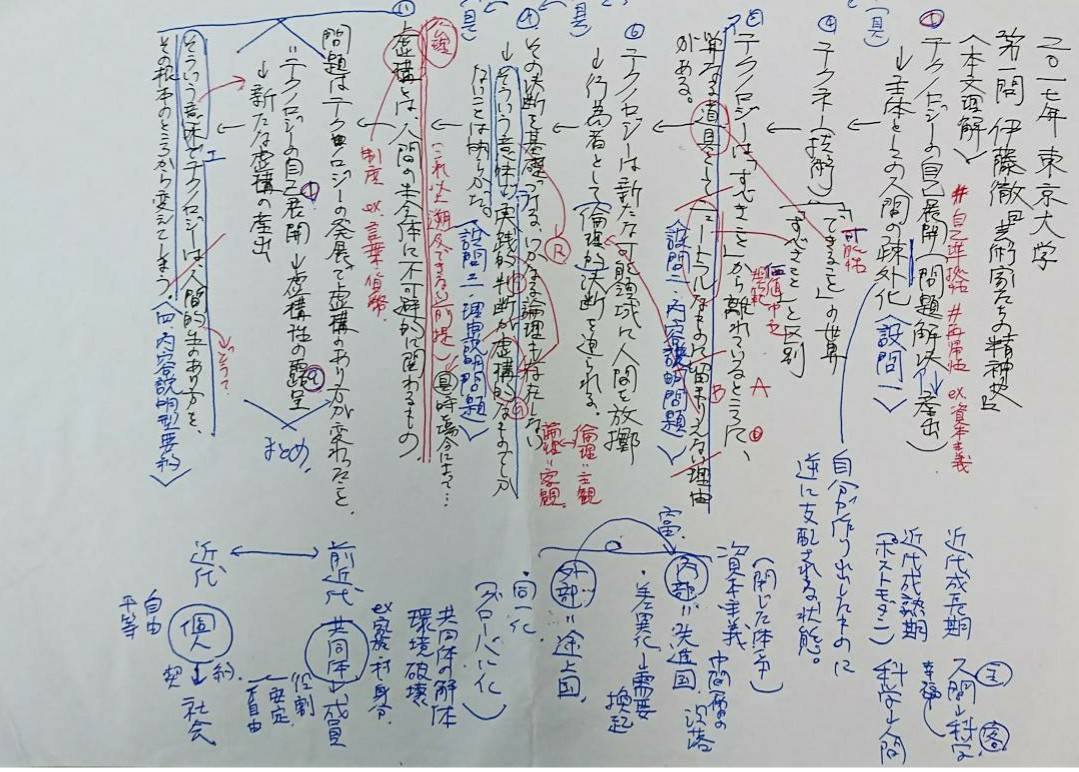 二〇一七年 東京大学
第一問 伊藤徹『芸術家たちの精神史』
〈本文理解〉
#自己準拠性 #再帰性 ex.資本主義
① テクノロジーの自己展開(問題解決↔産出)
↓主体としての人間の疎外化〈設問一〉
(具)
④ テクネー(技術)
「できること」の世界
可能性
「すべきこと」と区別
価値中立
⑤ テクノロジーは、「すべきこと」から離れているところに、
単なる道具として「ニュートラルなものに留まりえない理由
がある。
〈設問一・内容説明問題〉
A
B
⑥ テクノロジーは新たな可能領域に人間を放擲
↓行為者として倫理的決断を迫られる。
倫理=主観
論理=客観
(具)
その決断を基礎づける、いかなる論理も存在しない
↓そういう意味で実践的判断が虚構的なものでしか
ないことは明らかだ。
〈設問三・理由説明問題〉
(具)
(これ以上遡及できない前提)
⑪ 虚構とは、人間の生全体に不可避的に関わるもの
制度 ex.言葉・貨幣
具 時と場合によって…
問題はテクノロジーの発展で虚構のあり方が変わったこと。
=テクノロジーの自己展開→虚構性の露呈
↓新たな虚構の産出
まとめ
そういう意味でテクノロジーは、人間的生のあり方を、
その根本のところから変えてしまう。〈四・内容説明型要約〉
どうして
近代成長期 人間→科学
主 客
幸福
近代成熟期 科学→人間
(ポストモダン)
自分が作り出したものに
逆に支配される状態。
(閉じた体系)
資本主義 中間層の没落
内部=先進国
・差異化→需要
換起
富
外部=途上国
・同一化
(グローバル化)
共同体の解体
環境破壊
前近代 共同体→成員
ex 家族・村・身分
役割
安定
不自由
近代 個人→社会
契約
自由
平等